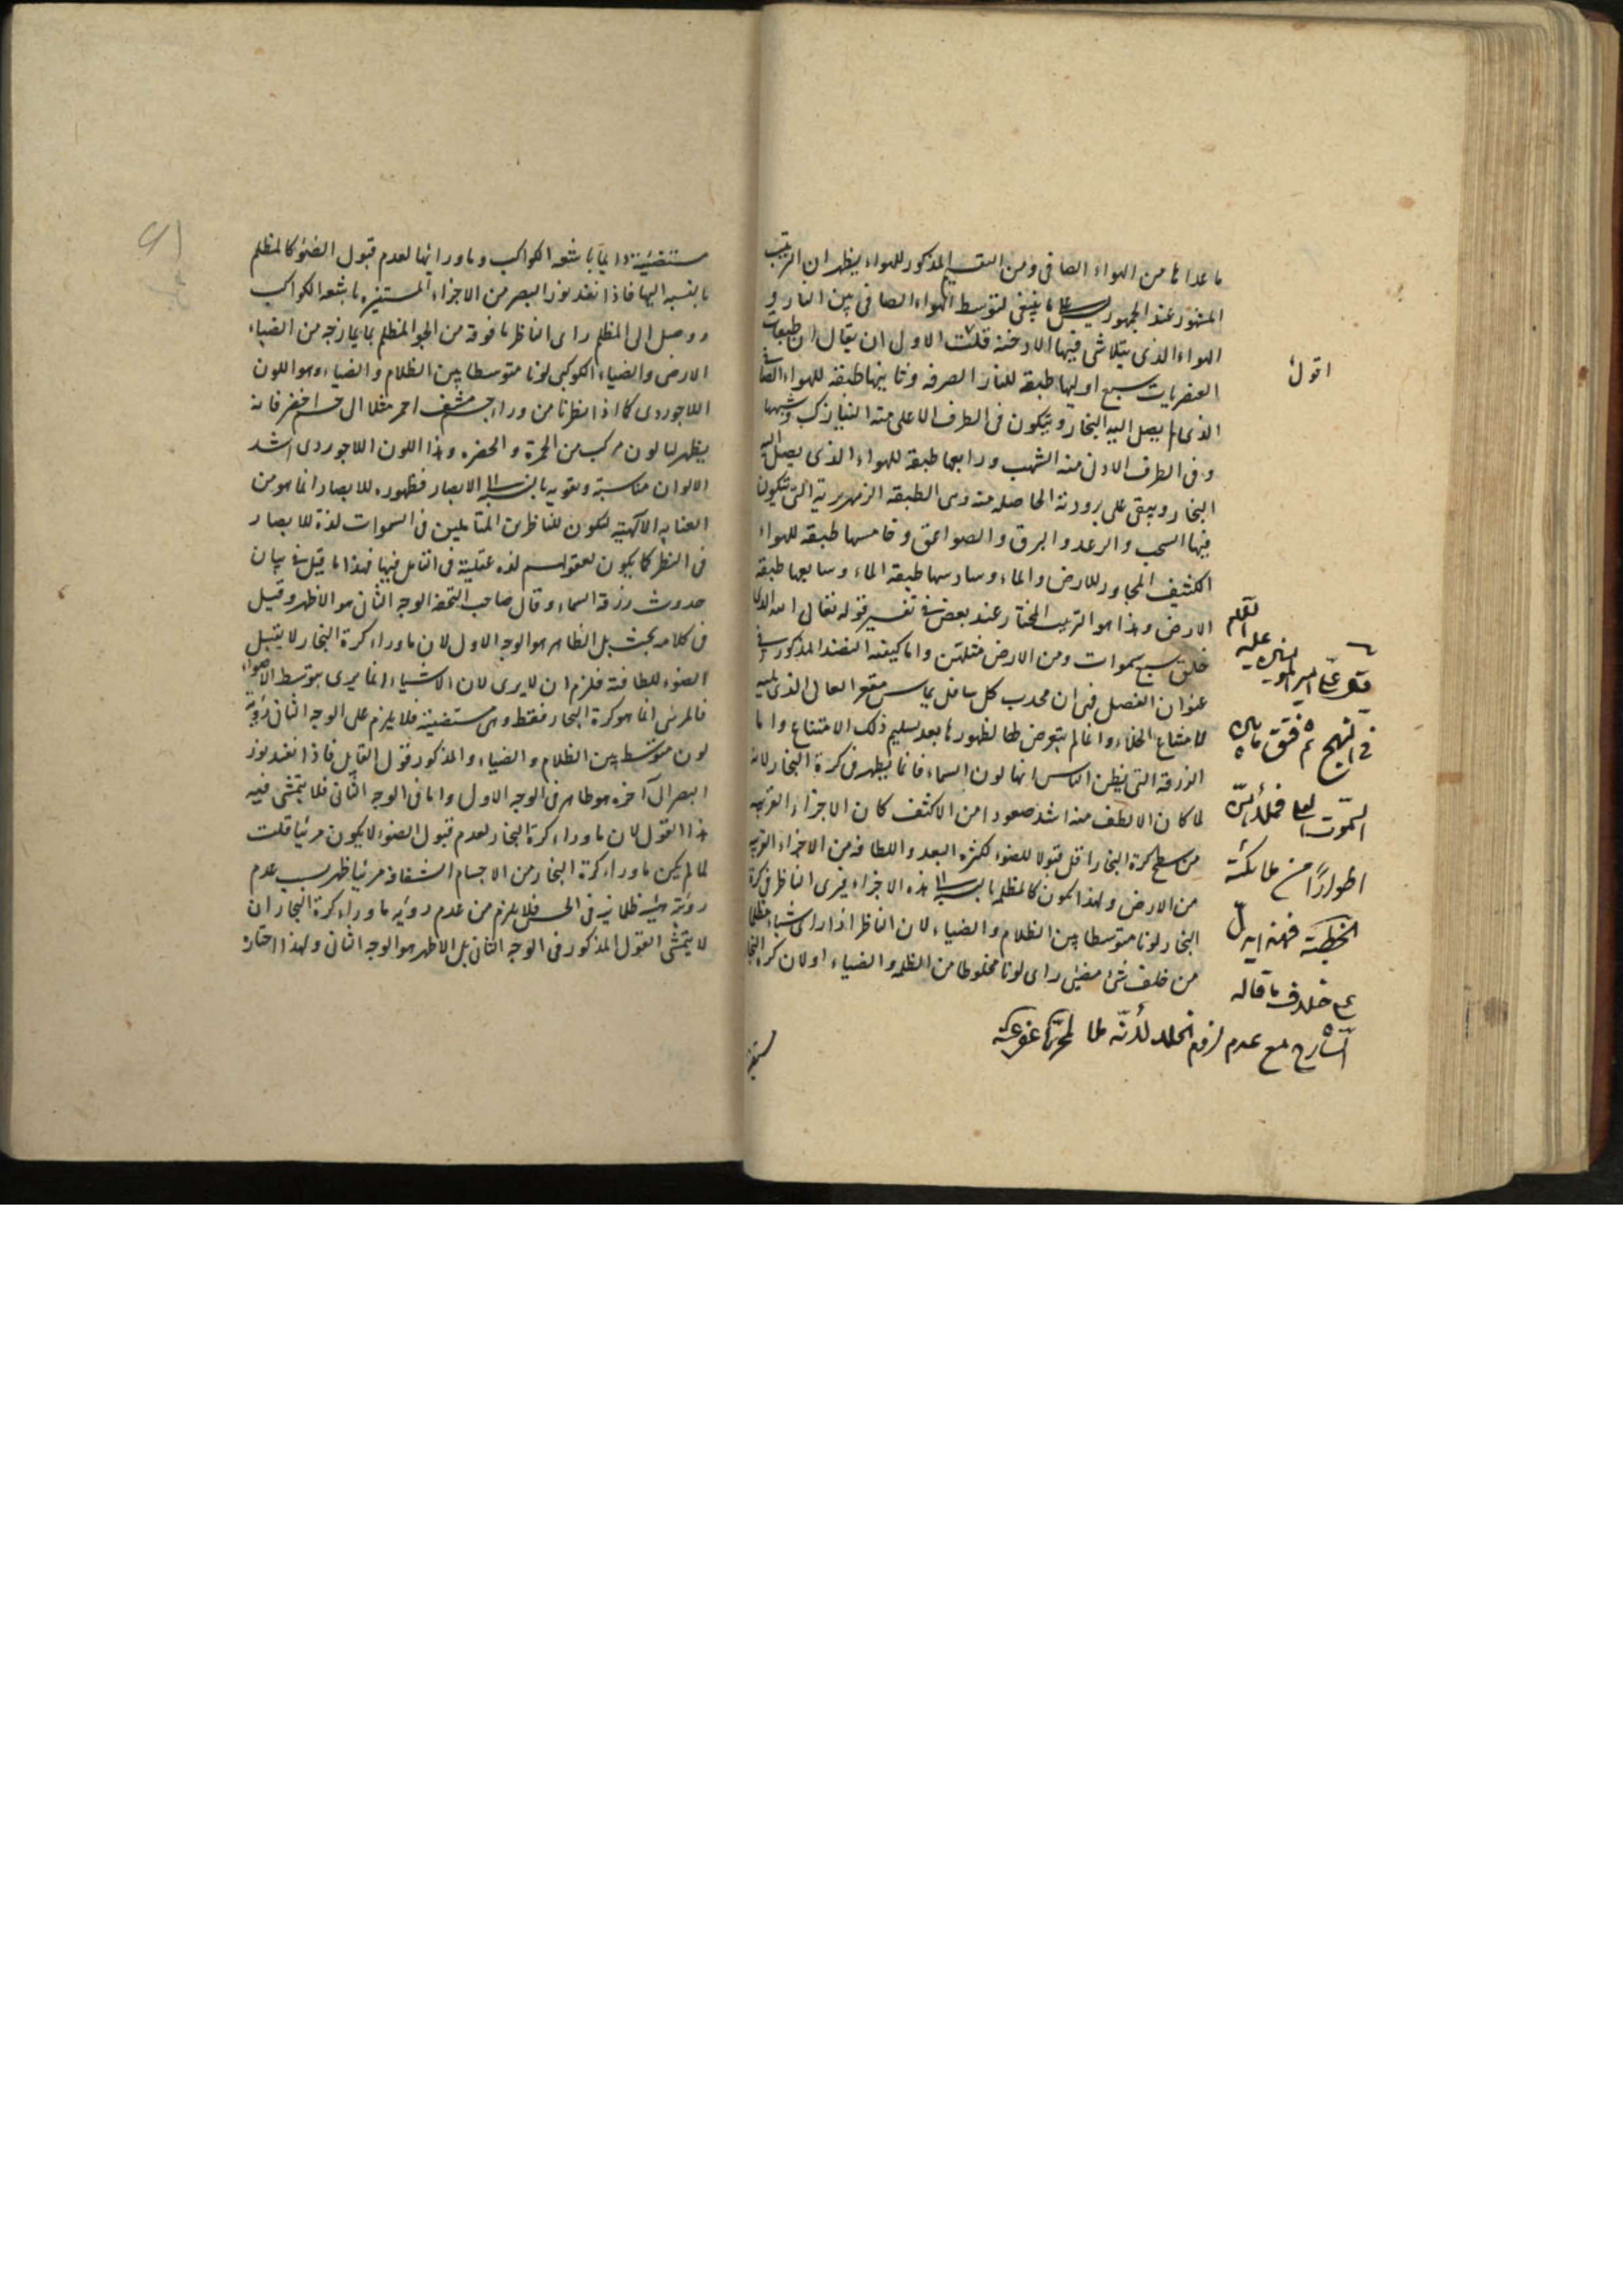 ما عداها من الهواء الصافى ومن التقسيم المذكور للهواء يظهر ان الترتيب
المشهور عند الجمهور ليس على ما ينبغى لتوسط الهواء الصافى بين النار و
الهواء الذى يتلاشى فيها الادخنة قلت الاول ان يقال ان طبقات
العنصريات سبع اوليها طبقة للنار الصرفه وثانيها طبقة للهواء الصافى
الذى لم يصل اليه البخار ويتكون فى الطرف الاعلى منه النيازك وشبهها
وفى الطرف الادنى منه الشهب ورابعها طبقة للهواء الذى يصل اليه
البخار ويبقى على برودته الحاصلة منه وهى الطبقة الزمهريرية التى تتكون
فيها السحب والرعد والبرق والصواعق وخامسها طبقة للهواء
الكثيف المجاور للارض والماء وسادسها طبقة الماء وسابعها طبقة
الارض وهذا هو الترتيب المختار عند بعض فى تفسير قوله تعالى الله الذى
خلق سبع سموات ومن الارض مثلهن واما كيفية النضد المذكور فى
عنوان الفصل فهى ان محدب كل سافل يماس مقعر العالى الذى يليه
لامتناع الخلاء وانما لم يتعرض لها لظهورها بعد تسليم ذلك الامتناع واما
الزرقة التى يظن الناس انها لون السماء فانما يظهر فى كرة البخار لانه
لما كان الالطف منه اشد صعودا من الاكثف كان الاجزاء القريبه
من سطح كرة البخار اقل قبولا للضوء لكثرة البعد واللطافه من الاجزاء القريبه
من الارض ولهذا تكون كالمظلم بالنسبة الى هذه الاجزاء فيرى الناظر فى كرة
البخار لونا متوسطا بين الظلام والضياء لان الناظر اذا راى شيئا مظلما
من خلف شئ مضئ راى لونا مخلوطا من الظلمه والضياء اولان كرة البخار
اقول
فى النهج ثم فتق ما بين
السموات العلى فملأهن
اطوارًا من ملائكته
على خلاف ما قاله
الشارح مع عدم لزوم الخلاء لانه
مستضيئة دايما باشعه الكواكب وماورائها لعدم قبول الضوء كالمظلم
بالنسبه اليها فاذا نفذ نور البصر من الاجزاء المستنيره باشعه الكواكب
ووصل الى المظلم راى الناظر ما فوقه من الجو المظلم بما يمازجه من الضياء
الارضى والضياء الكوكبى لونا متوسطا بين الظلام والضياء وهو اللون
اللاجوردى كما اذا نظرنا من وراء جسم مشف احمر مثلا الى جسم اخضر فانه
يظهر لنا لون مركب من الحمرة والخضره وهذا اللون اللاجوردى اشد
الالوان مناسبة وتقويه بالنسبة الى الابصار فظهوره للابصار انما هو من
العنايه الالهيه لتكون للناظرين المتاملين فى السموات لذة للابصار
فى النظر كما يكون لعقولهم لذه عقلية فى التامل فيها فهذا ما قيل فى بيان
حدوث زرقة السماء وقال صاحب التحفه الوجه الثانى هو الاظهر وقيل
فى كلامه بحث بل الظاهر هو الوجه الاول لان ماوراء كرة البخار لا يقبل
الضوء للطافته فلزم ان لا يرى لان الاشياء انما يرى بتوسط الاضواء
فالمرئى انما هو كرة البخار فقط وهى مستضيئة فلا يلزم على الوجه الثانى رؤية
لون متوسط بين الظلام والضياء والمذكور فقول القايل فاذا نفذ نور
البصر الى آخره هو ظاهر فى الوجه الاول واما فى الوجه الثانى فلا يتمشى فيه
هذا القول لان ماوراء كرة البخار لعدم قبول الضوء لا يكون مرئيا قلت
لما لم يكن ماوراء كرة البخار من الاجسام الشفافه مرئيا ظهر بسبب عدم
رؤيته شئ ظلمانى فى الحس فلا يلزم من عدم رؤيه ماوراء كرة البخار ان
لا يتمشى القول المذكور فى الوجه الثانى بل الاظهر هو الوجه الثانى ولهذا اختاره